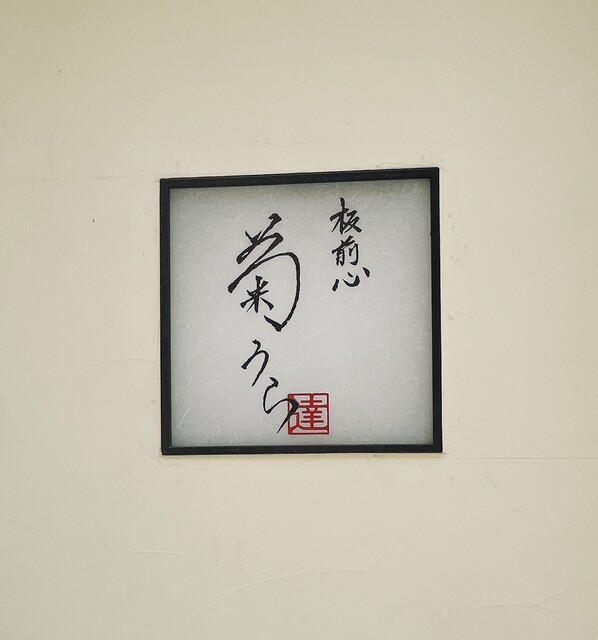 板前心
菊うら
達